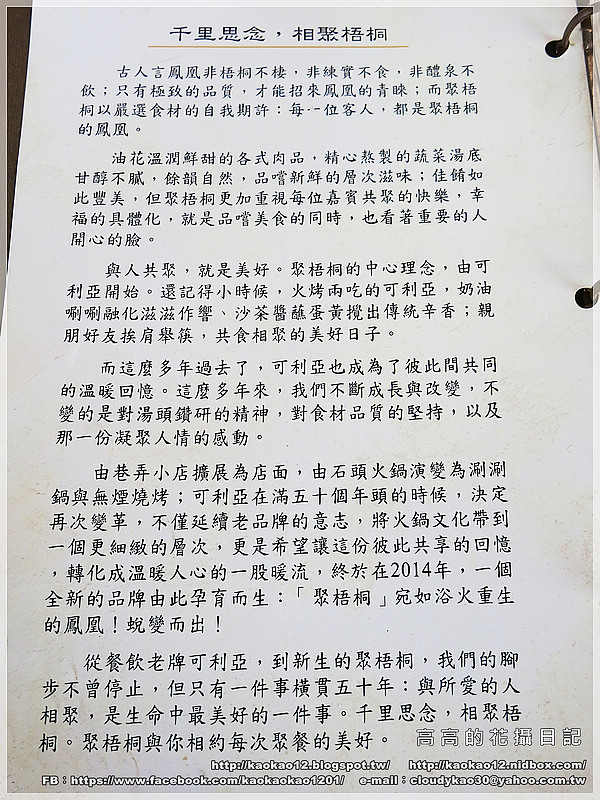 千里思念，相聚梧桐
古人言鳳凰非梧桐不棲，非練實不食，非醴泉不
飲；只有極致的品質，才能招來鳳凰的青睞；而聚梧
桐以嚴選食材的自我期許：每一位客人，都是聚梧桐
的鳳凰。
油花溫潤鮮甜的各式肉品，精心熬製的蔬菜湯底
甘醇不膩，餘韻自然，品嚐新鮮的層次滋味；佳餚如
此豐美，但聚梧桐更加重視每位嘉賓共聚的快樂，幸
福的具體化，就是品嚐美食的同時，也看著重要的人
開心的臉。
與人共聚，就是美好。聚梧桐的中心理念，由可
利亞開始。還記得小時候，火烤兩吃的可利亞，奶油
唰唰融化滋滋作響、沙茶醬蘸蛋黃攪出傳統辛香；親
朋好友挨肩舉筷，共食相聚的美好日子。
而這麼多年過去了，可利亞也成為了彼此間共同
的溫暖回憶。這麼多年來，我們不斷成長與改變，不
變的是對湯頭鑽研的精神，對食材品質的堅持，以及
那一份凝聚人情的感動。
由巷弄小店擴展為店面，由石頭火鍋演變為涮涮
鍋與無煙燒烤；可利亞在滿五十個年頭的時候，決定
再次變革，不僅延續老品牌的意志，將火鍋文化帶到
一個更細緻的層次，更是希望讓這份彼此共享的回憶
，轉化成溫暖人心的一股暖流，終於在2014年，一個
全新的品牌由此孕育而生：「聚梧桐」宛如浴火重生
的鳳凰！蛻變而出！
從餐飲老牌可利亞，到新生的聚梧桐，我們的腳
步不曾停止，但只有一件事橫貫五十年：與所愛的人
相聚，是生命中最美好的一件事。千里思念，相聚梧
桐。聚梧桐與你相約每次聚餐的美好。
高高的花攝日記
http://kaokao12.blogspot.tw/ http://kaokao12.nidbox.com/
FB：https://www.facebook.com/kaokaokao1201/ e-mail：cloudykao30@yahoo.com.tw